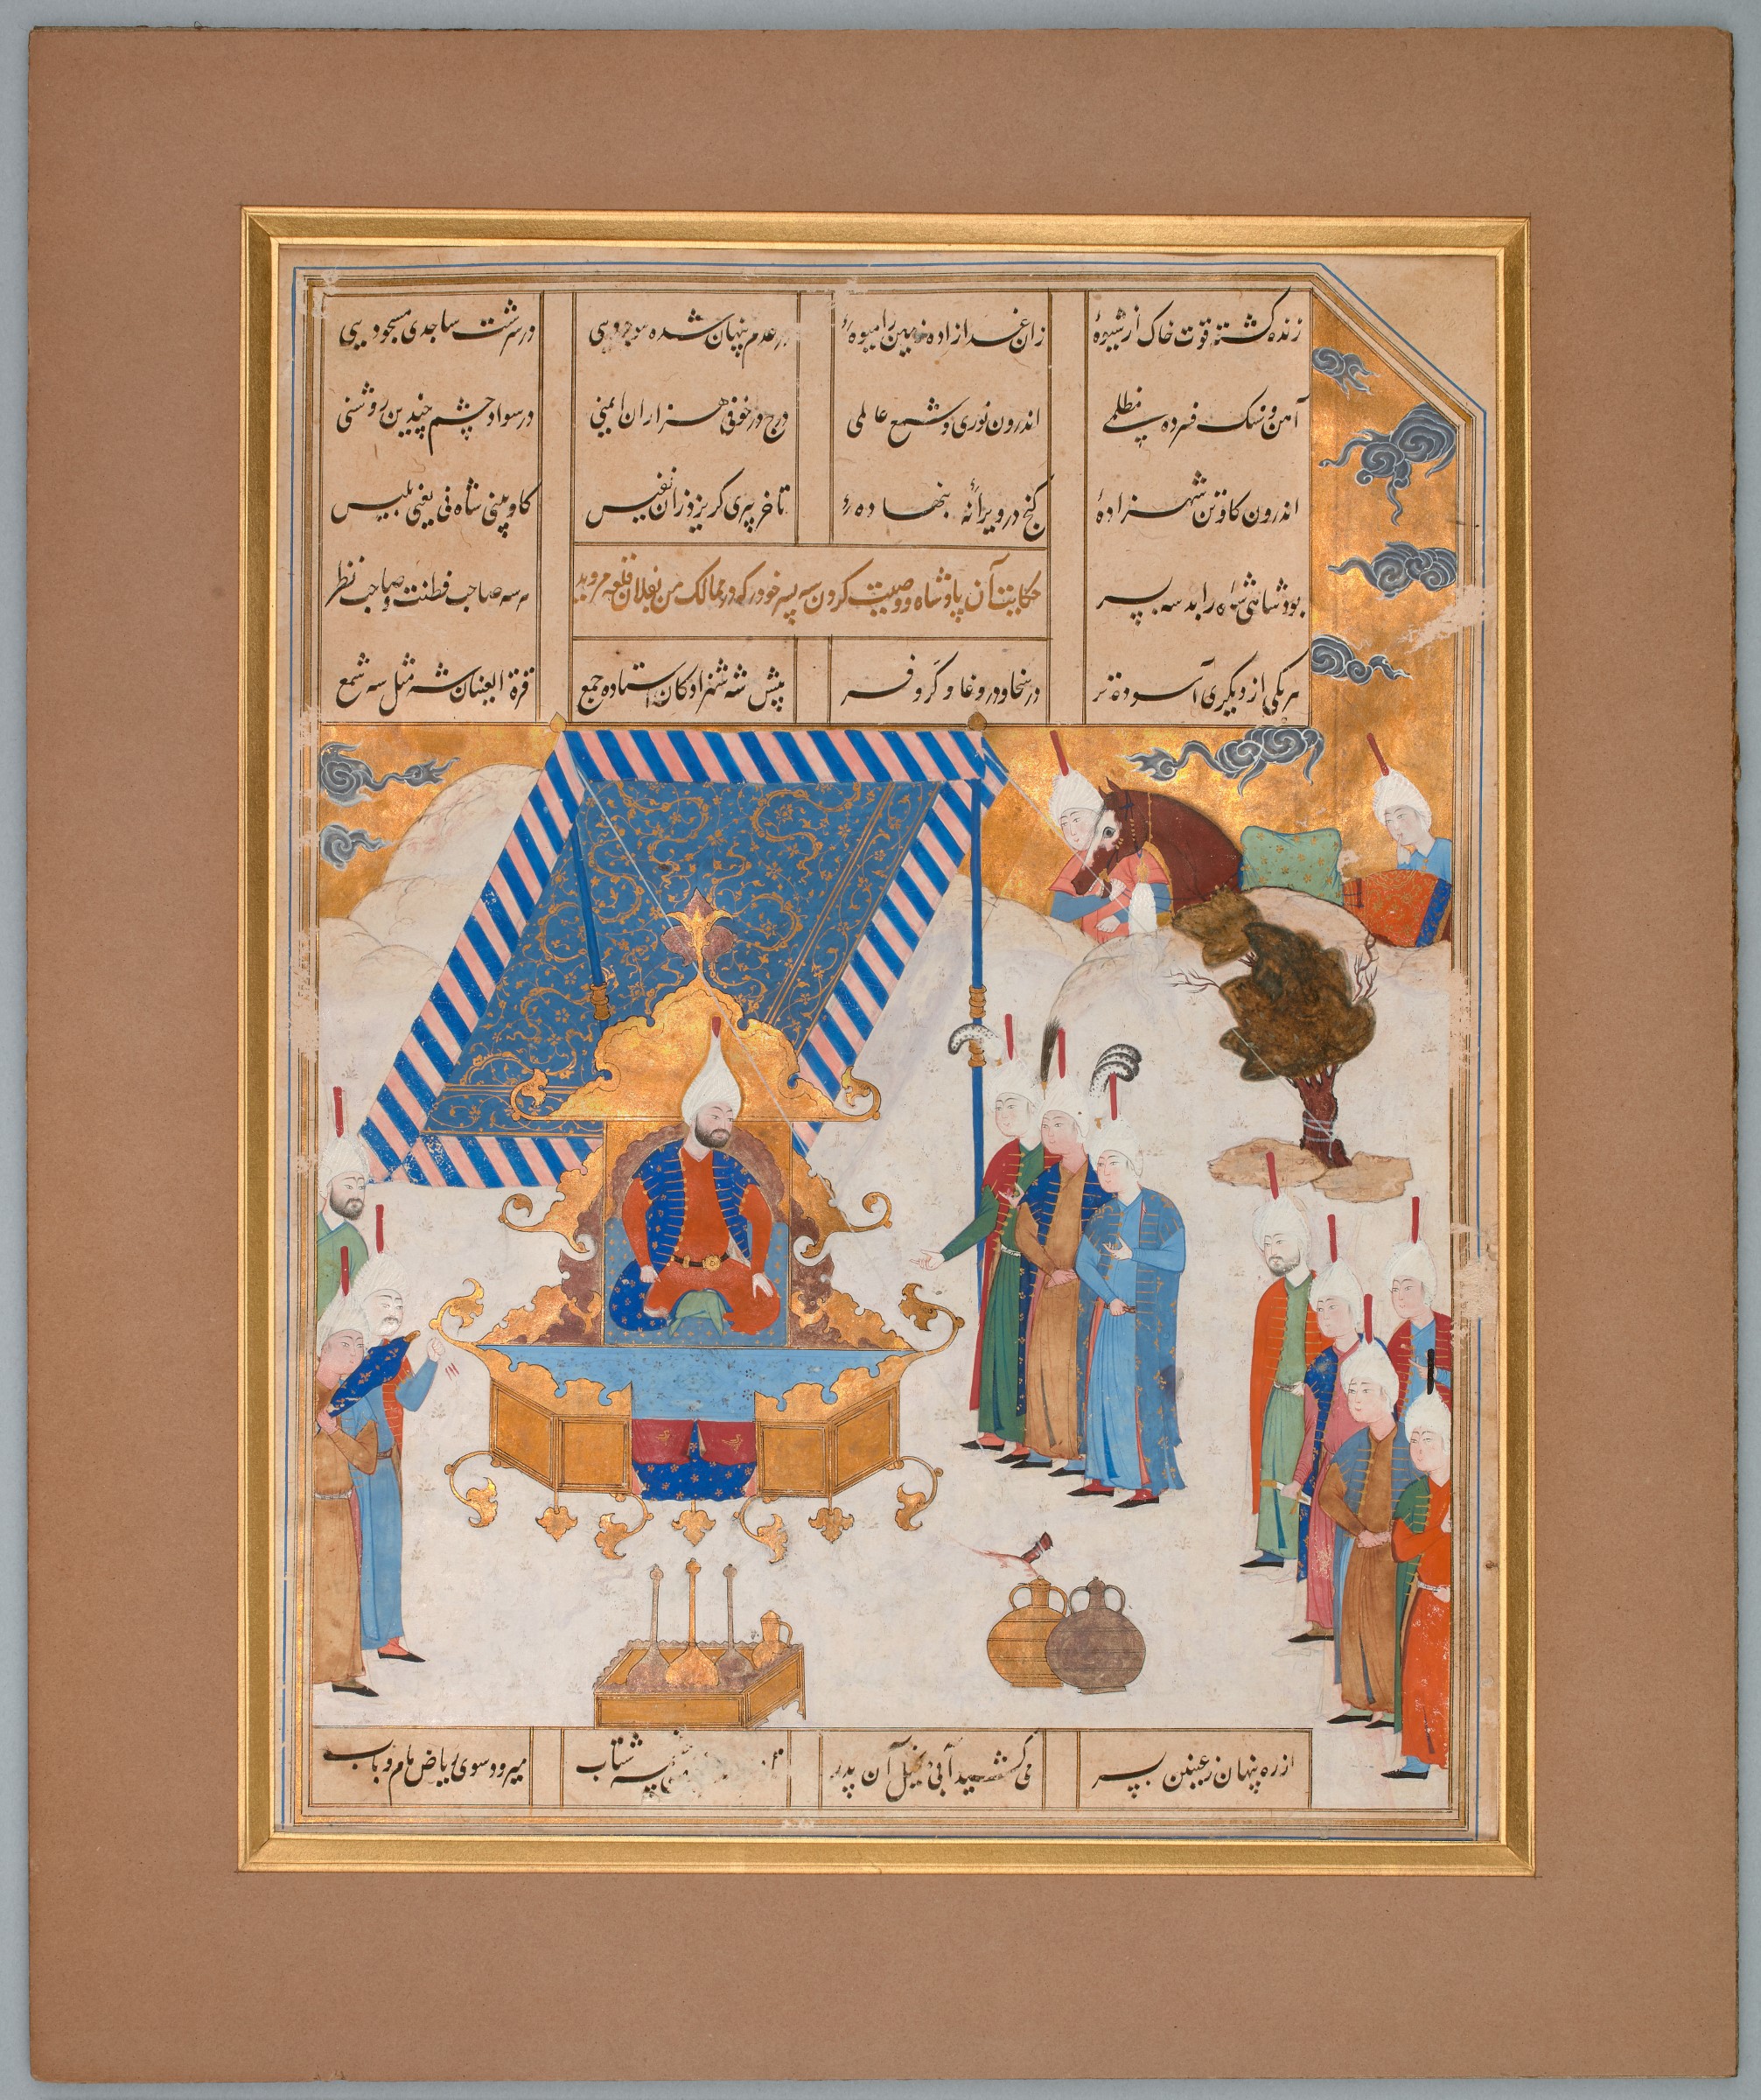 زنده گشته قوت خاک از شیوهٔ زان غدا زاده زمین را میوهٔ در عدم پنهان شده موجودیی در سرشت ساجدی مسجودیی
آهن و سنک فسرده مظلمی اندرون نوری و شمع عالمی درج در خوفی هزاران ایمنی در سواد چشم چندین روشنی
اندرون کاو تن شهزادهٔ کنج در ویرانه بنهادهٔ تا خر پیری کریزد زان نفیس کاو بینی شاه نی یعنی بلیس
بود شاهی شاه را بد سه پسر حکایت آن پادشاه و وصیت کردن سه پسر خود را که در ممالک من بفلان قلعه مروید هر سه صاحب فطنت و صاحب نظر
هر یکی از دیکری آسوده تر در سخا و در وغا و کر و فر پیش شه شهزادکان استاده جمع قرة العینان شه مثل سه شمع
از ره پنهان ز عینین پسر می کشید آبی نخیل آن پدر شتاب میرود سوی ریاض مام و باب